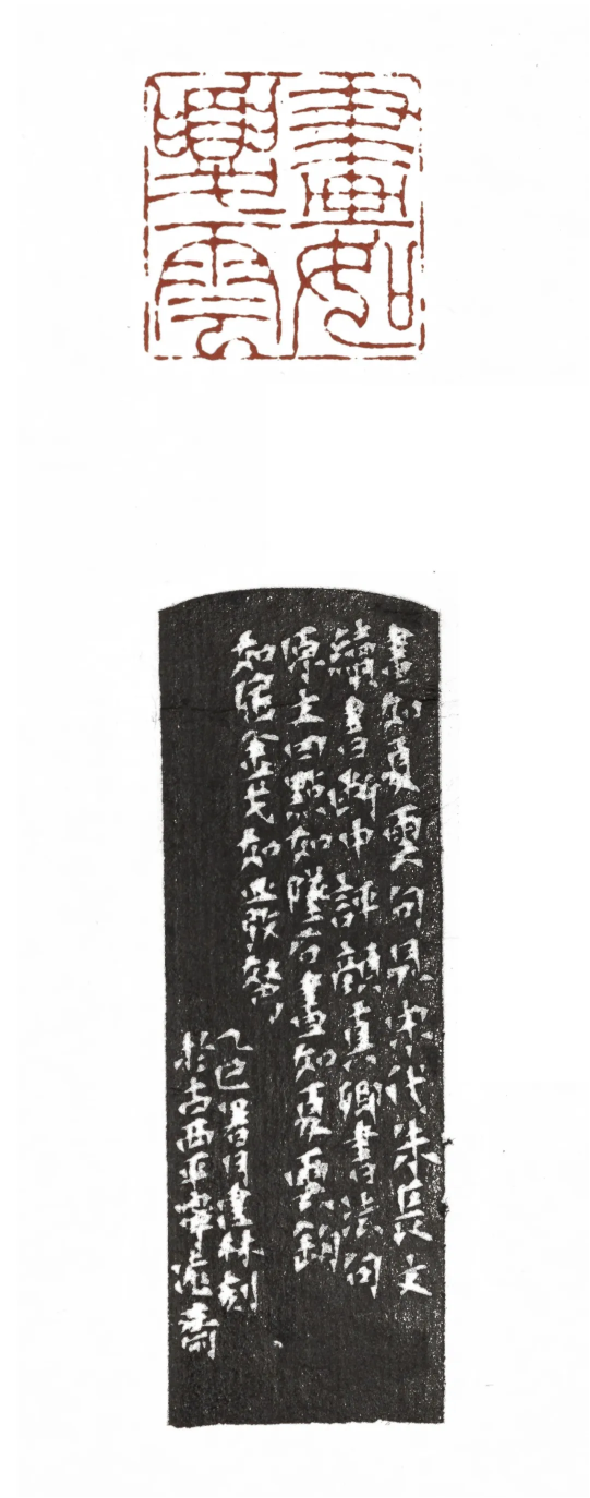 畫如
夏雲
畫如夏雲句見宋代朱長文
續書斷中評顏真卿書法句
原文曰點如墜石畫如夏雲鉤
如屈金戈如發弩
乙巳暑月建林刻
於古西平齋